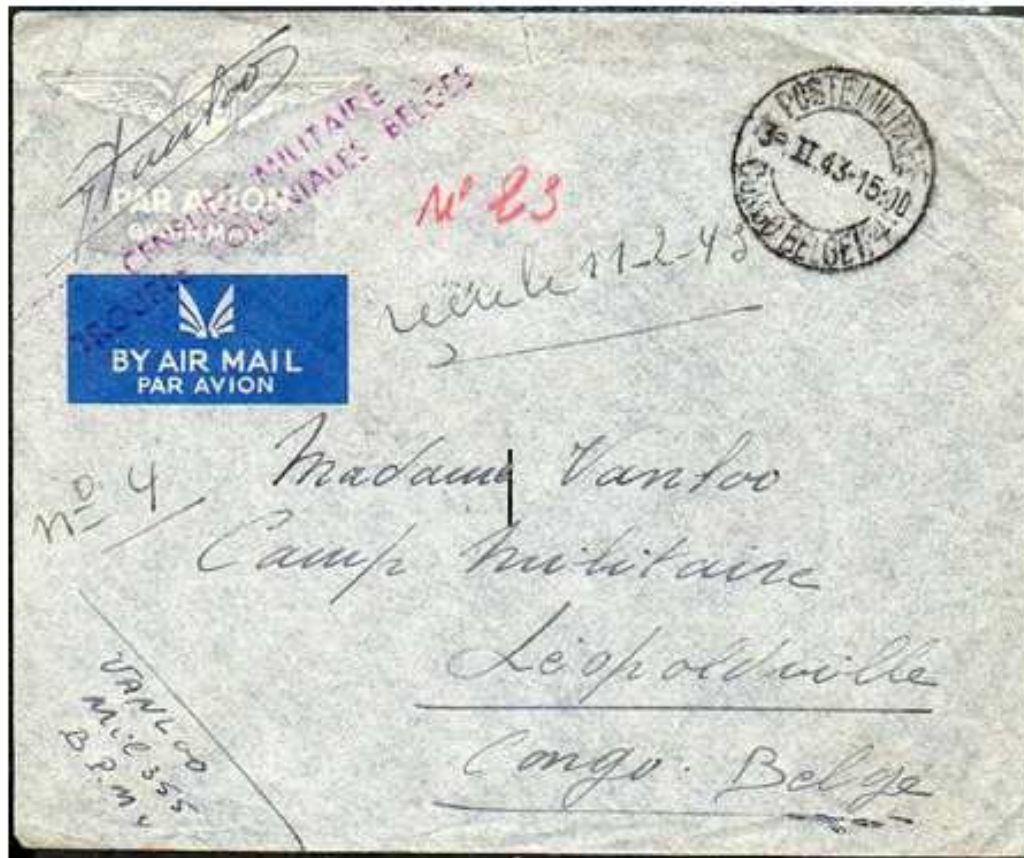 Vanloo
CENSURE MILITAIRE
TROUPES COLONIALES BELGES
PAR AVION
POSTE MILITAIRE
3= II.43-15:00
CONGO BELGE
N° 23
reçue le 11-2-43
BY AIR MAIL
PAR AVION
Madame Vanloo
n° 4
Camp Militaire
Léopoldville
Congo. Belge
VANLOO
Mil 355
B.P.M.